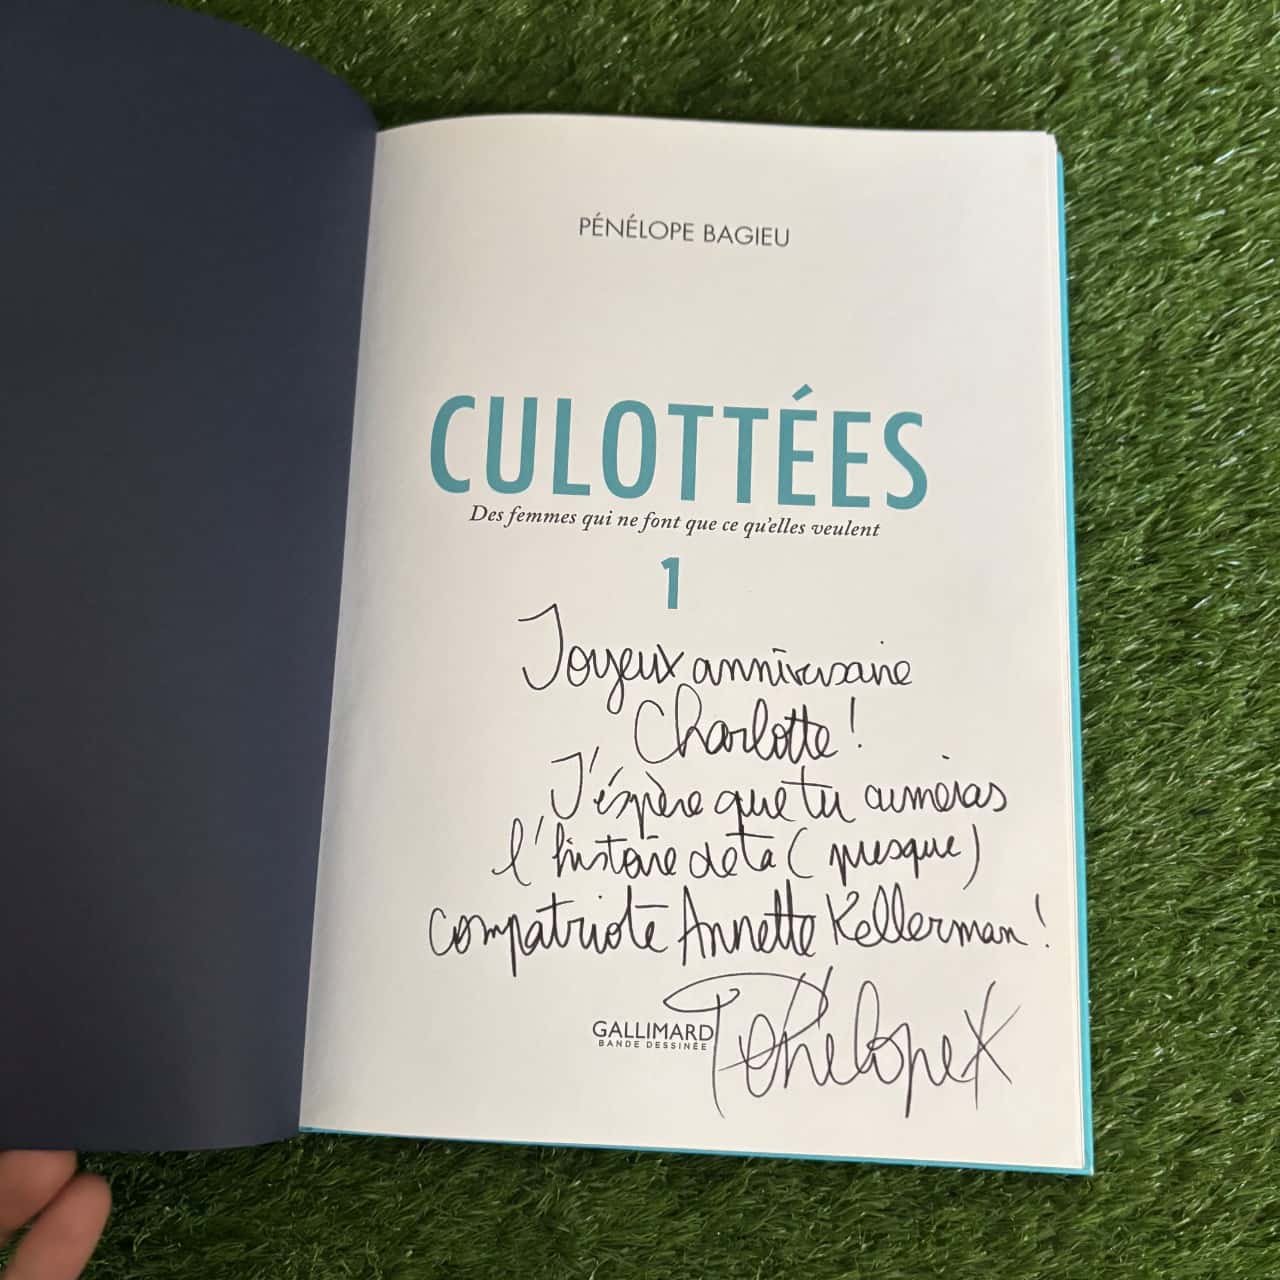 PÉNÉLOPE BAGIEU
CULOTTÉES
Des femmes qui ne font que ce qu'elles veulent
1
Joyeux anniversaire
Charlotte !
J'éspère que tu aimeras
l'histoire de ta (presque)
compatriote Annette Kellerman !
GALLIMARD
BANDE DESSINÉE
Pénélope X